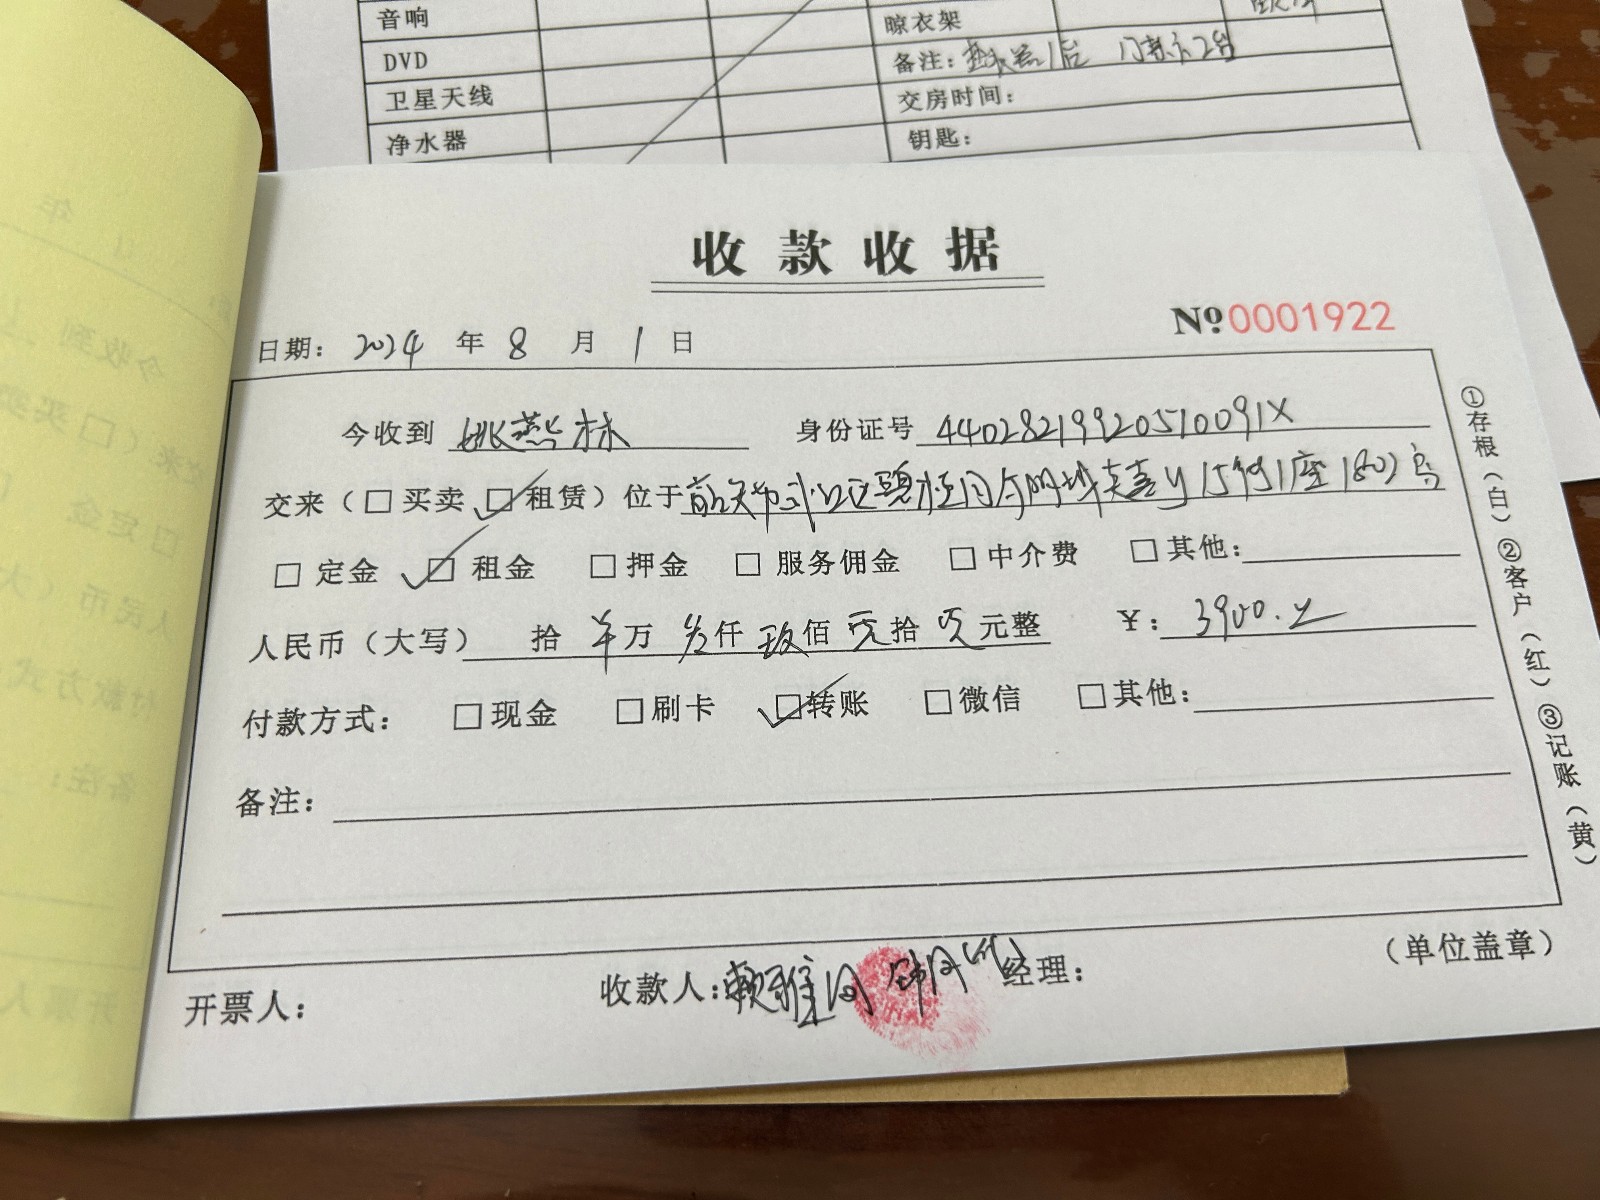 音响
晾衣架
DVD
备注: 1台 门禁卡2台
卫星天线
交房时间:
净水器
钥匙:
收款收据
Nº0001922
日期: 2024 年 8 月 1 日
今收到 姚燕林 身份证号 44028219920510091X
交来（□买卖 □租赁）位于 1座1802房
□ 定金 □ 租金 □ 押金 □ 服务佣金 □ 中介费 □ 其他:
人民币（大写） 拾 万 仟 玖佰 零拾 零元整 ¥: 3900.
付款方式: □现金 □刷卡 □转账 □微信 □其他:
备注:
①存根（白）②客户（红）③记账（黄）
开票人: 收款人: 赖雅 经理: （单位盖章）